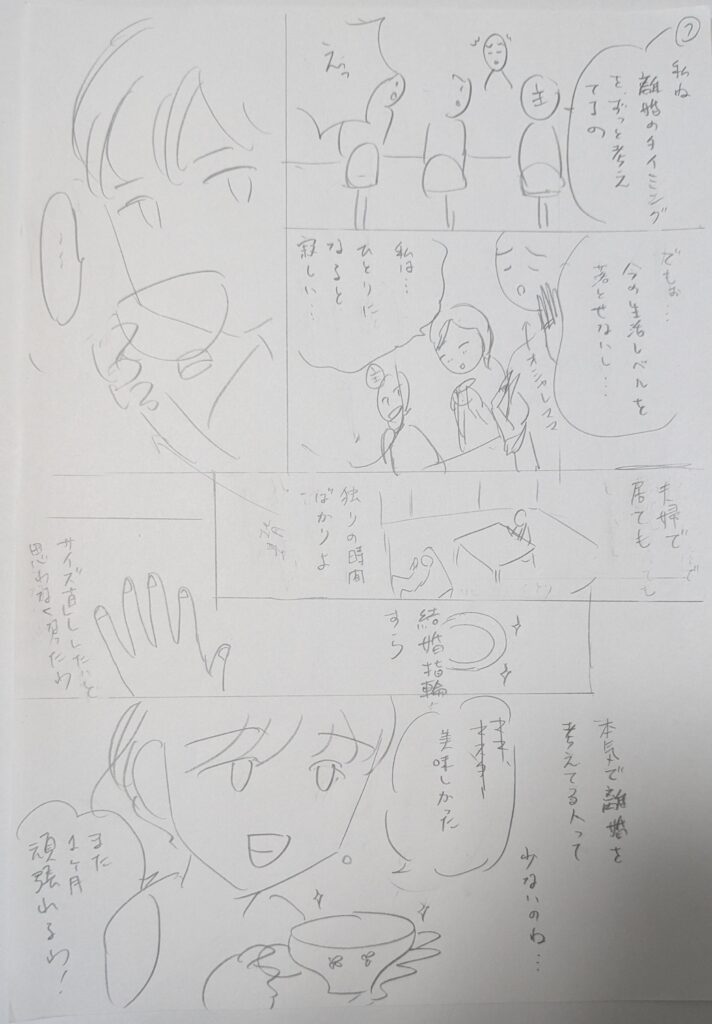 ⑦
私ね
離婚のタイミング
を、ずっと考え
てるの
えっ
主
でもぉ…
今の生活レベルを
落とせないし…
オシャレママ
私は…
ひとりに
なると
寂しい…
主
…
夫婦で
居ても
独りの時間
ばかりよ
結婚指輪
すら
サイズ直ししたいと
思わなくなったわ
本気で離婚を
考えてる人って
少ないのね…
ママ、
美味しかった
また
1ヶ月
頑張れるわ!